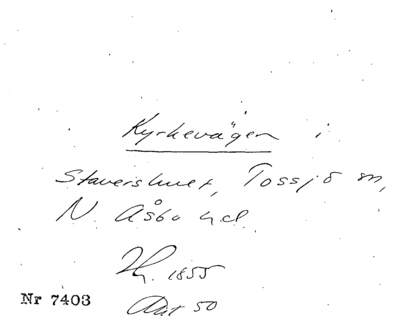 Kyrkevägen i
Stavershult, Tossjö sn,
N. Åsbo hd.
1855
Nr 7403
50